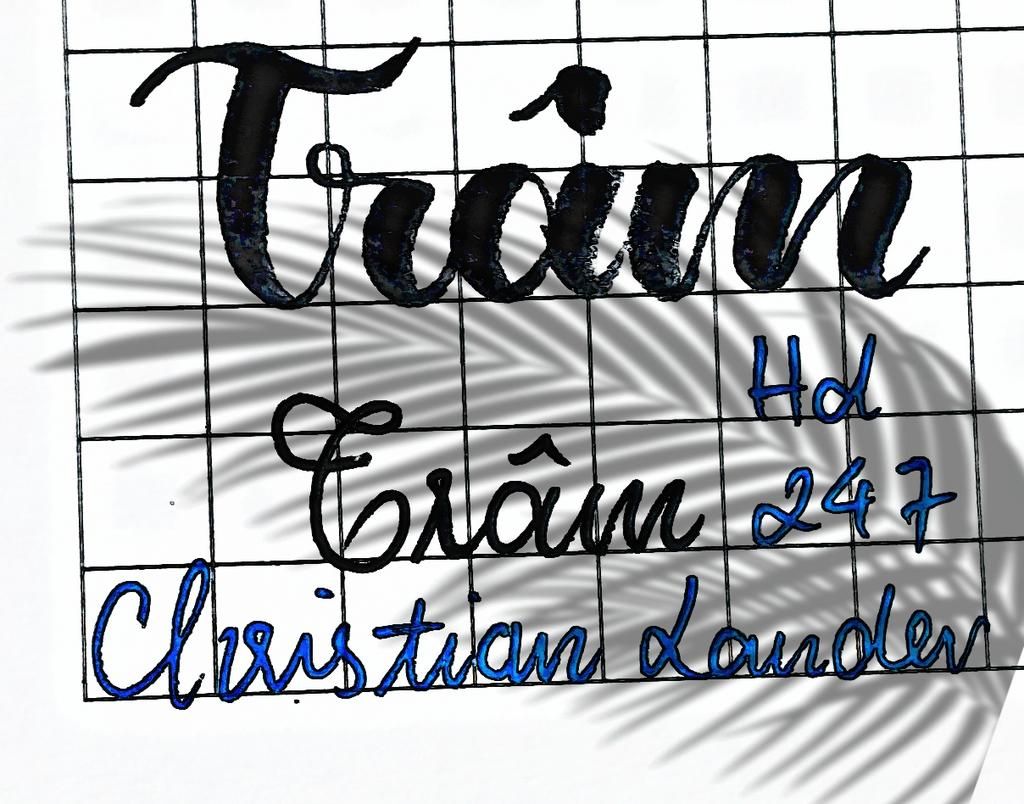 Trâm
Hd
Trâm 247
Christian Lander